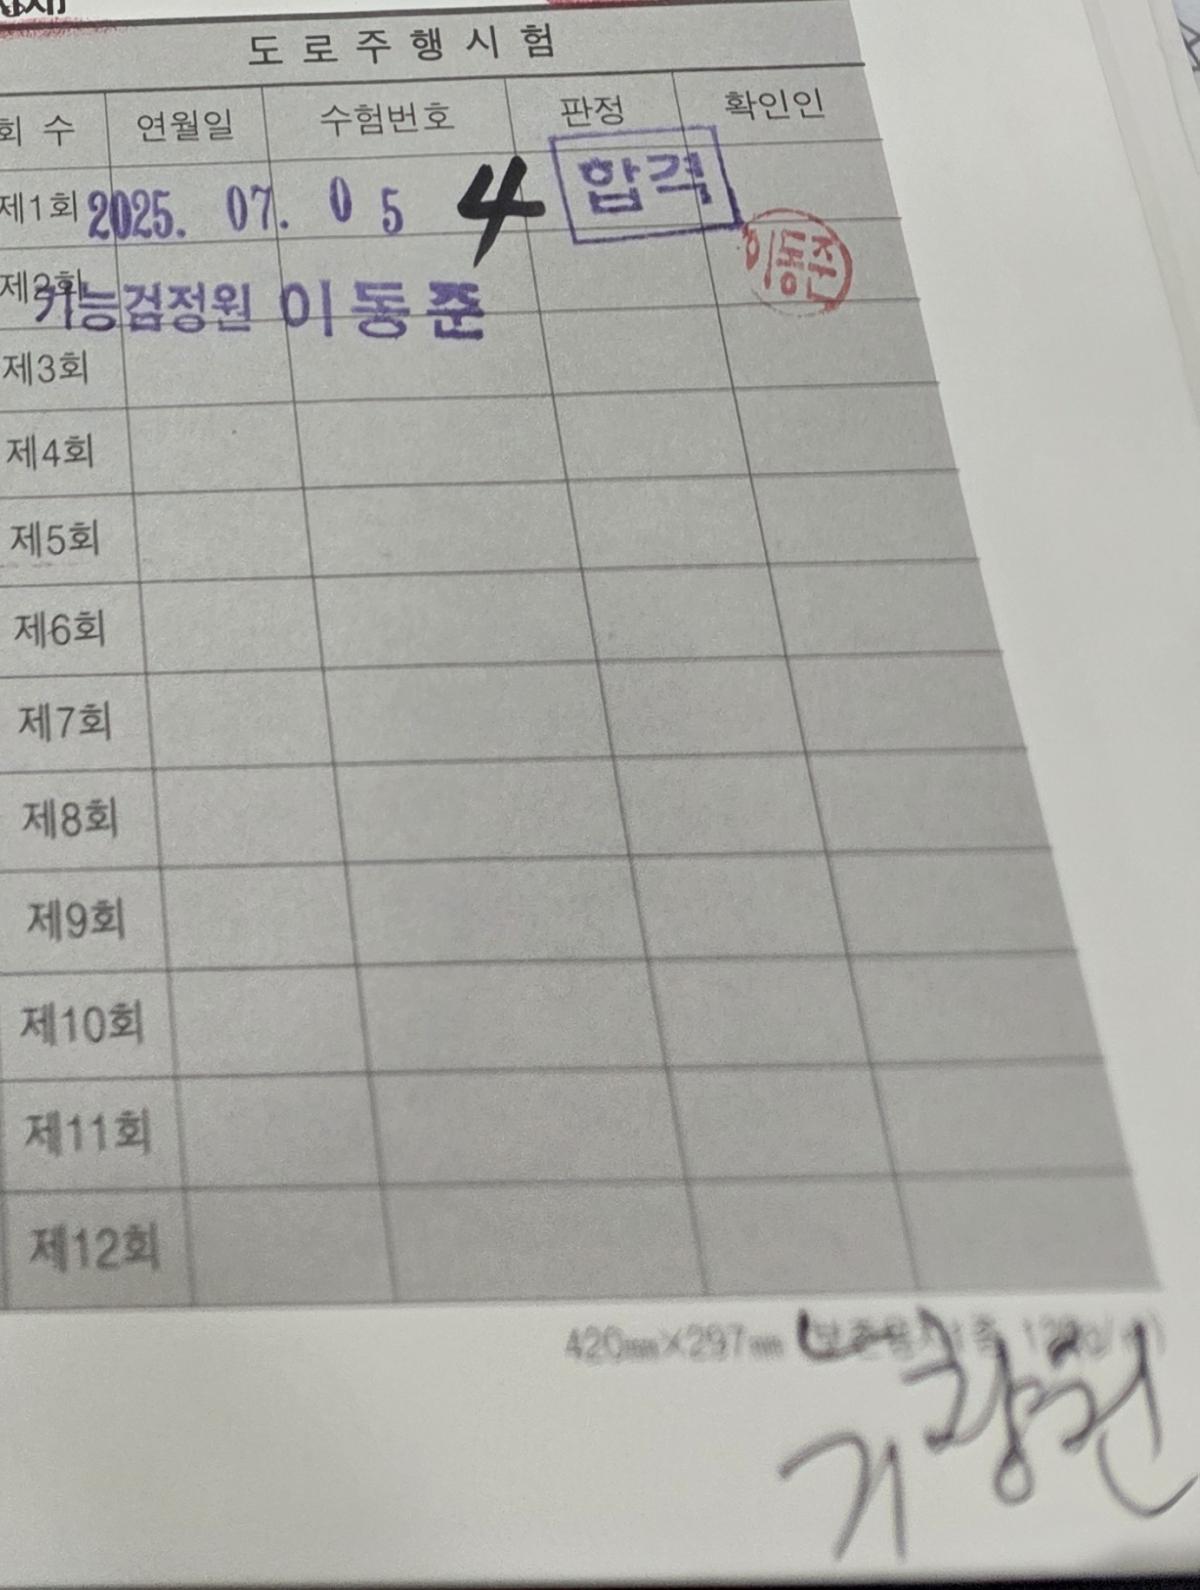 도로주행시험
회 수 연월일 수험번호 판정 확인인
제1회 2025. 07. 05 4 합격
이동준
제2회
기능검정원 이동준
제3회
제4회
제5회
제6회
제7회
제8회
제9회
제10회
제11회
제12회
420㎜×297㎜